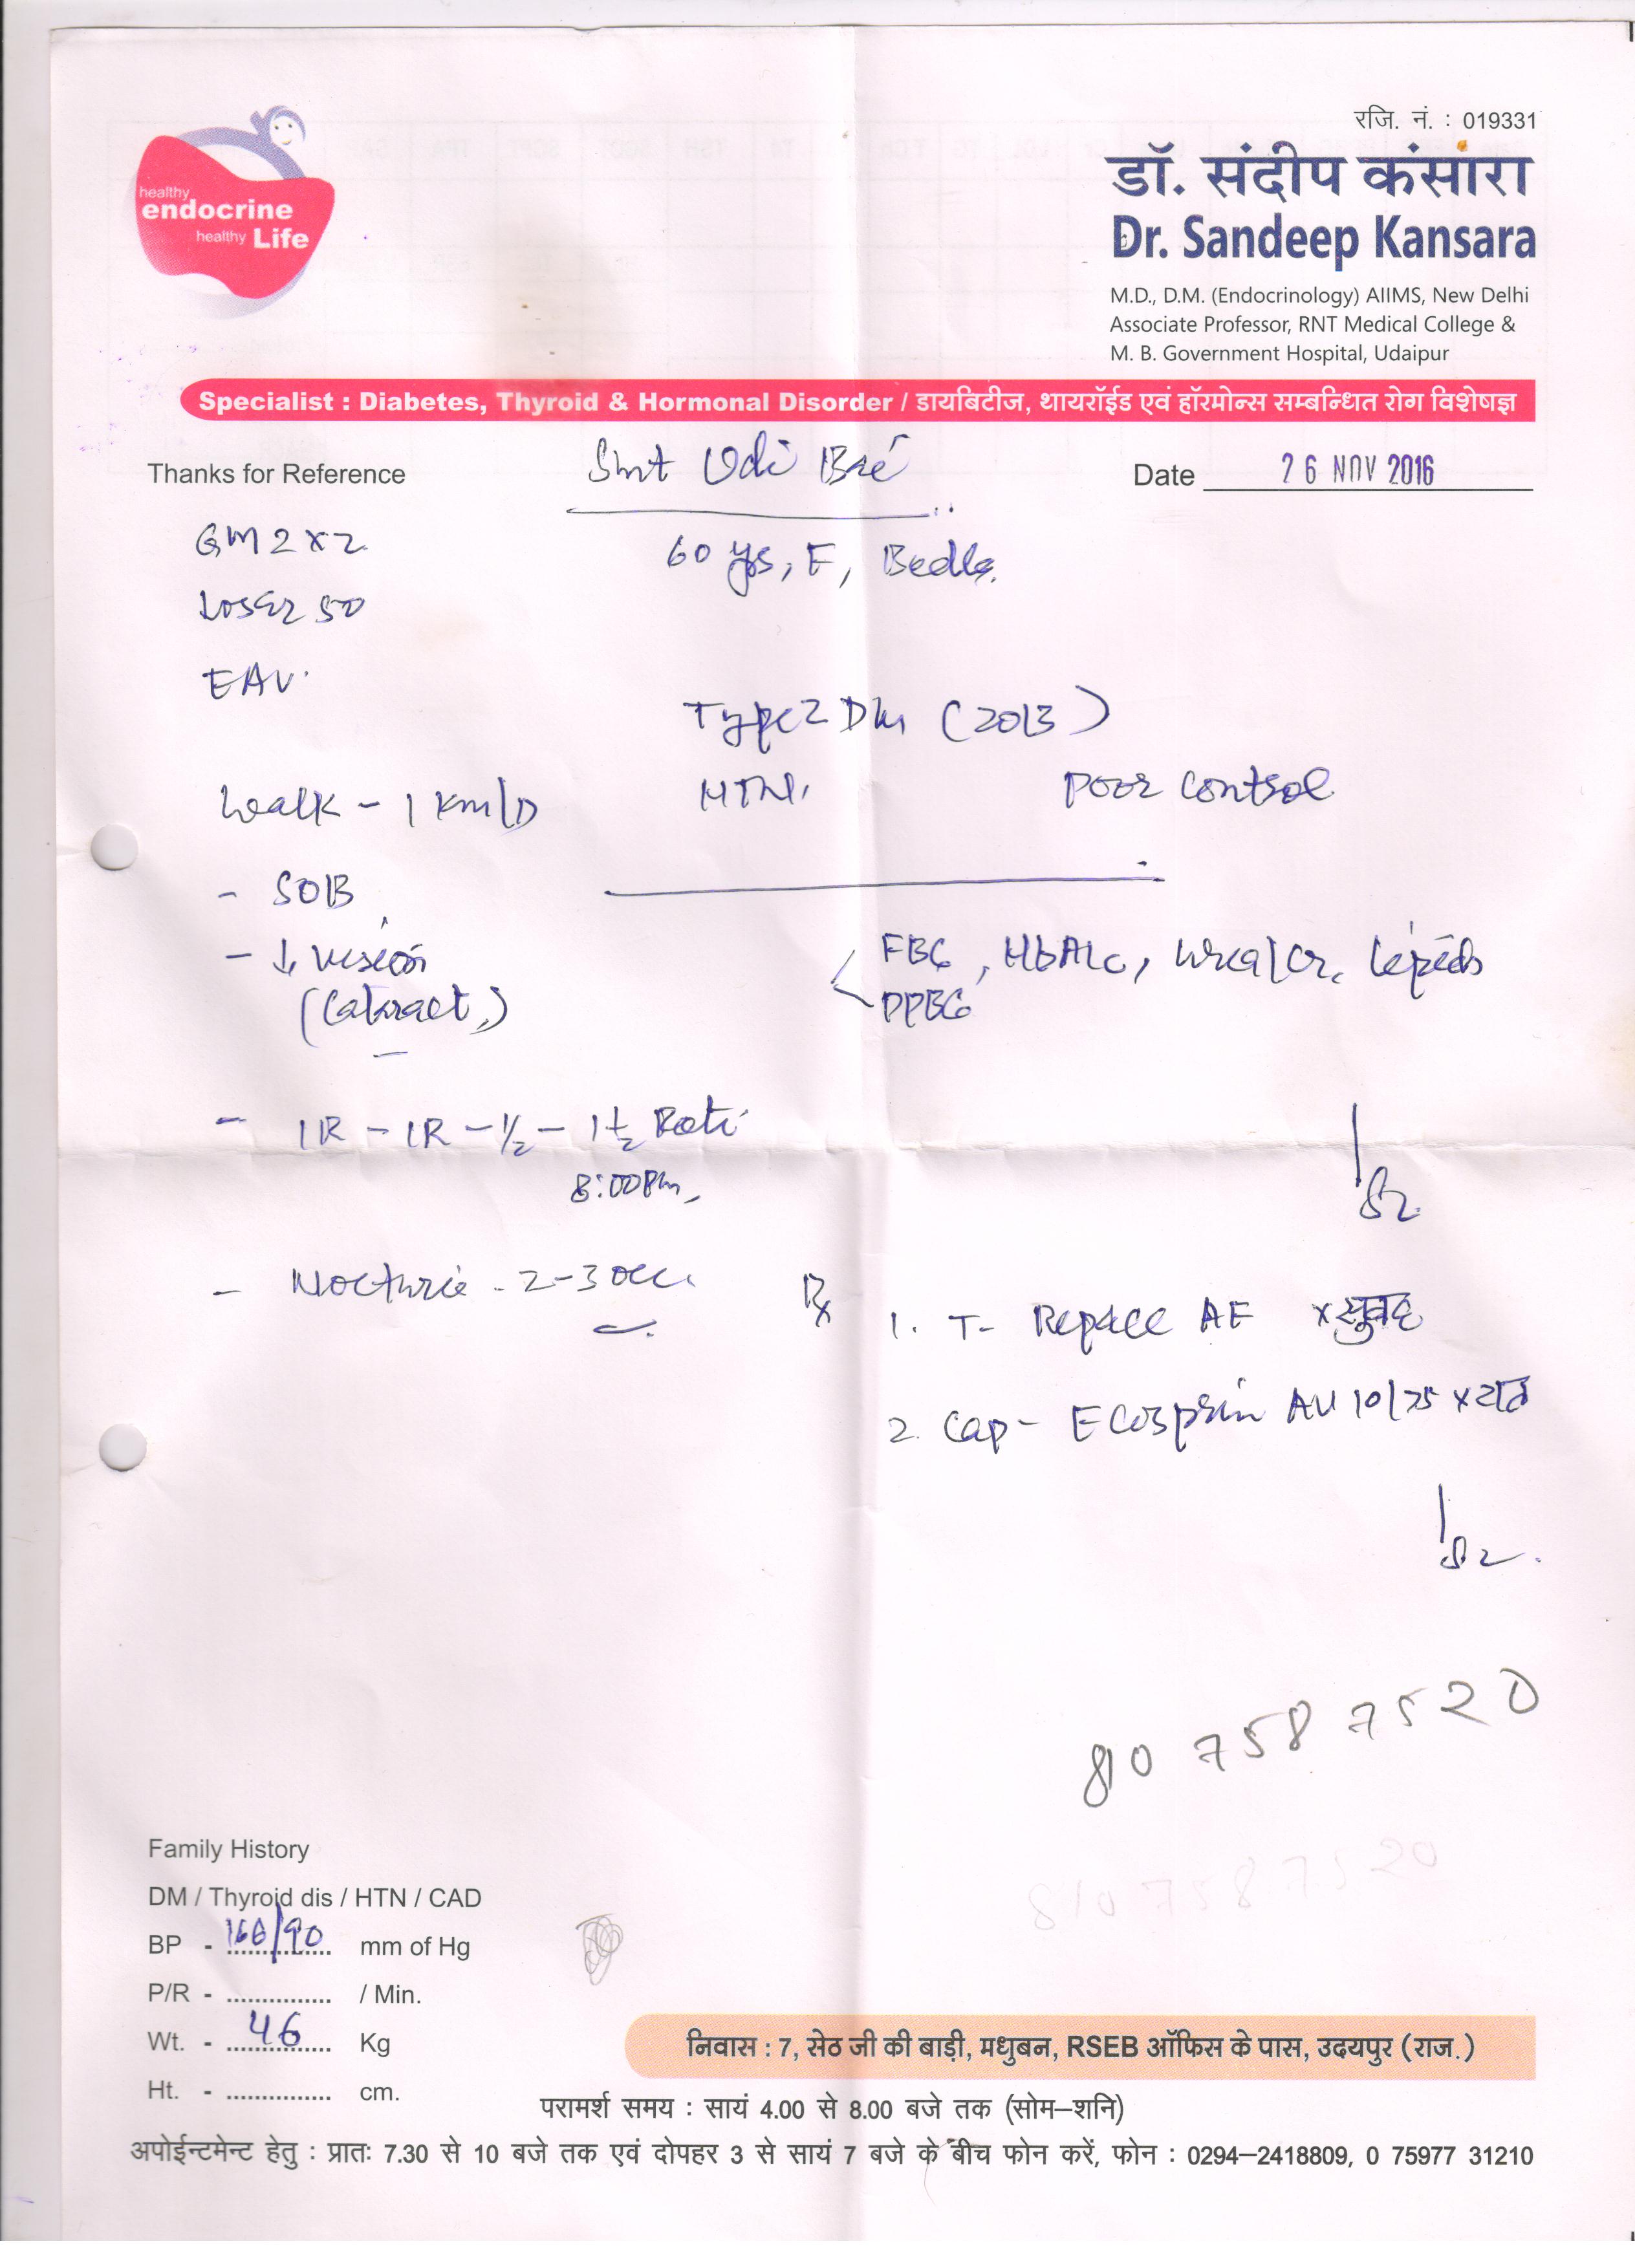 रजि. नं. : 019331
healthy
endocrine
healthy Life
डॉ. संदीप कंसारा
Dr. Sandeep Kansara
M.D., D.M. (Endocrinology) AIIMS, New Delhi
Associate Professor, RNT Medical College &
M. B. Government Hospital, Udaipur
Specialist : Diabetes, Thyroid & Hormonal Disorder / डायबिटीज, थायरॉईड एवं हॉरमोन्स सम्बन्धित रोग विशेषज्ञ
Thanks for Reference
Smt Udi Bai
Date 26 NOV 2016
GM2 x 2
60 yrs, F, Bedla
Losar 50
EAV
Type 2 DM (2013)
HTN. Poor control
Walk - 1 Km/D
- SOB
- ↓ vision
(Cataract)
FBG, HbA1c, Urea/Cr, Lipids
PPBG
- 1R - 1R - ½ - 1½ Roti
8:00 PM
- Nocturia - 2-3 occ.
Rx
1. T- Repace AF x सुबह
2. Cap - Ecosprin AV 10/75 x रात
810 758 7520
810 758 7520
Family History
DM / Thyroid dis / HTN / CAD
BP - 160/90 mm of Hg
P/R - .............. / Min.
Wt. - 46 Kg
Ht. - .............. cm.
निवास : 7, सेठ जी की बाड़ी, मधुबन, RSEB ऑफिस के पास, उदयपुर (राज.)
परामर्श समय : सायं 4.00 से 8.00 बजे तक (सोम–शनि)
अपोईन्टमेन्ट हेतु : प्रातः 7.30 से 10 बजे तक एवं दोपहर 3 से सायं 7 बजे के बीच फोन करें, फोन : 0294–2418809, 0 75977 31210